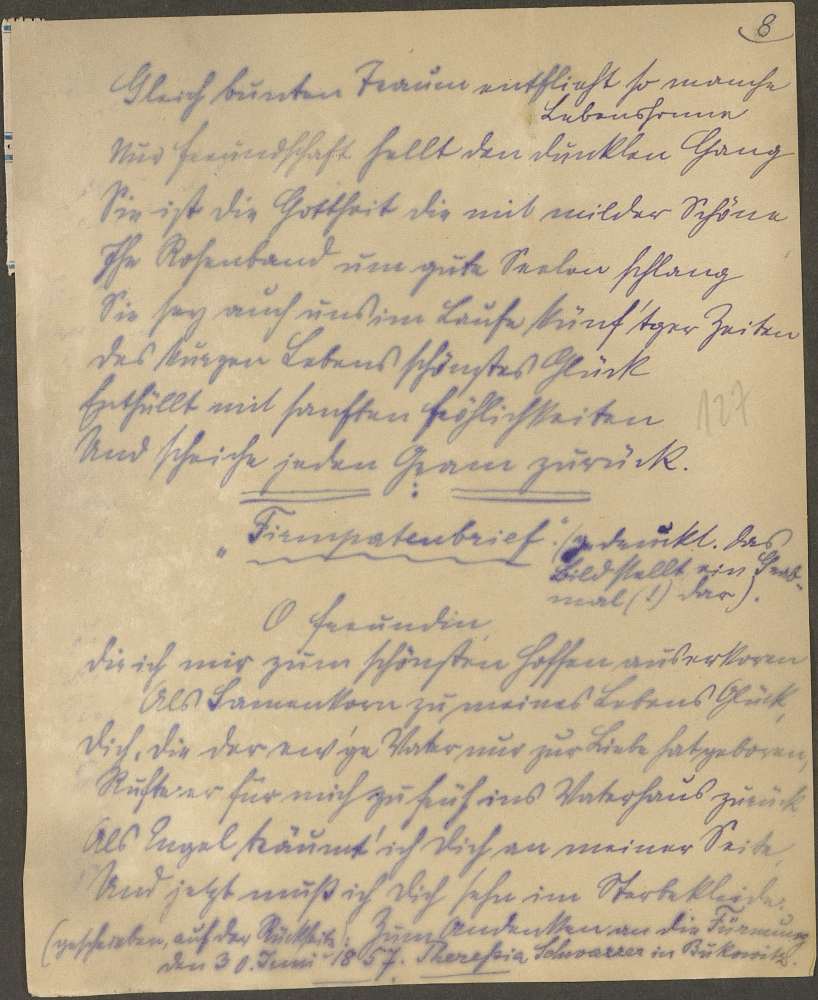 8
Gleich bunten Traum entflieht so manche
Lebenssonne
Nur Freundschaft hellt den dunklen Gang
Sie ist die Gottheit die mit milder Schöne
Ihr Rosenband um gute Seelen schlang
Sie sey auch uns im Laufe künft'ger Zeiten
Des kurzen Lebens schönstes Glück
Enthüllt mit sanften Fröhlichkeiten
127
Und scheiche jeden Gram zurück.
"Firmpatenbrief." (gedruckt. Das
Bild stellt ein Grab-
mal (!) dar).
O Freundin,
die ich mir zum schönsten Hoffen auserkoren
Als Samenkorn zu meines Lebens Glück,
Dich, die der ew'ge Vater nur zur Liebe hat geboren,
Rufte er für mich zu früh ins Vaterhaus zurück
Als Engel träumt' ich Dich an meiner Seite,
Und jetzt muß ich Dich sehn im Sterbekleide.
(geschrieben, auf der Rückseite): Zum Andenken an die Firmung
den 30. Juni 1857. Theresia Schwarzer in Bukowitz.